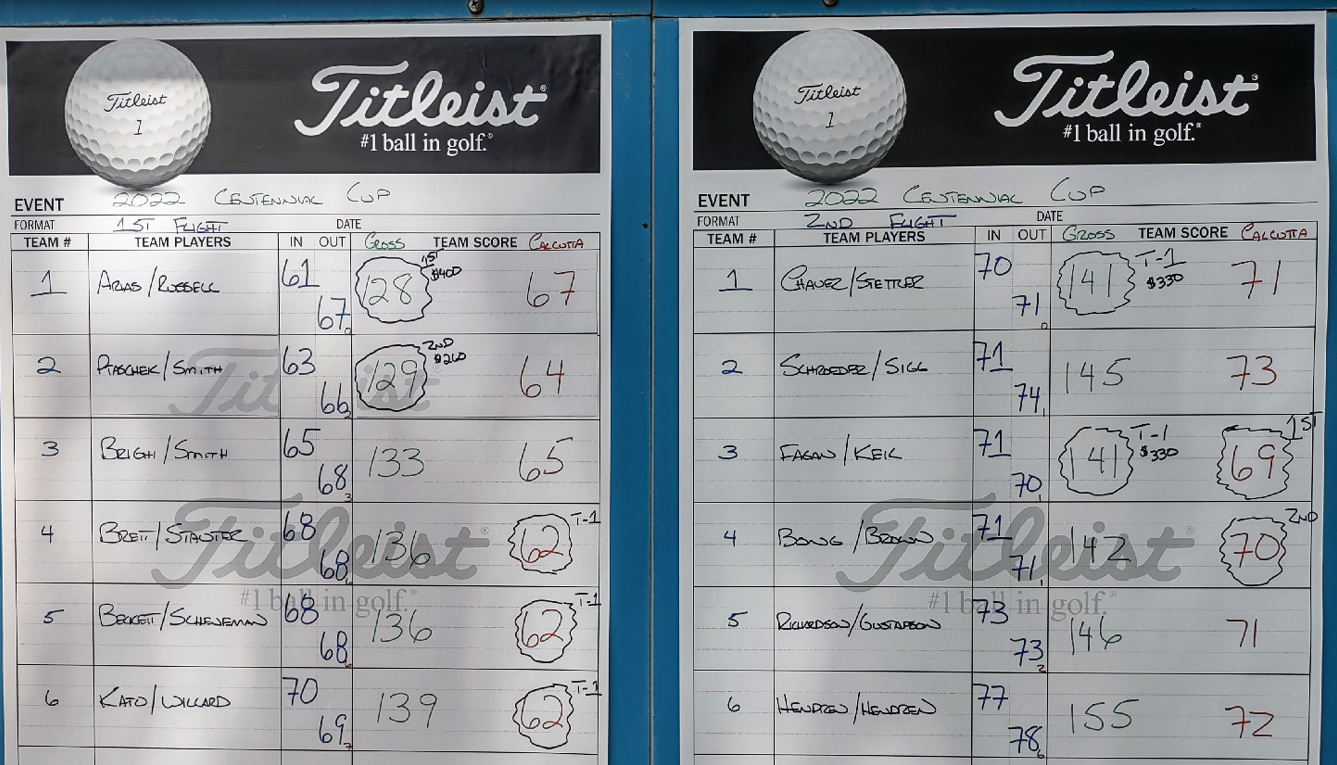 Titleist
1
Titleist®
#1 ball in golf.®
EVENT 2022 CENTENNIAL CUP
FORMAT 1ST FLIGHT DATE
TEAM # TEAM PLAYERS IN OUT GROSS TEAM SCORE CALCUTTA
1 ARIAS/RUSSELL 61 67 128 1ST $400 67
2 PIASCHEK/SMITH 63 66 129 2ND $260 64
3 BRIGHI/SMITH 65 68 133 65
4 BRETT/STAUTER 68 68 136 62 T-1
5 BECKETT/SCHEUEMAN 68 68 136 62 T-1
6 KATO/WILLARD 70 69 139 62 T-1
Titleist®
#1 ball in golf.®
Titleist
1
Titleist®
#1 ball in golf.®
EVENT 2022 CENTENNIAL CUP
FORMAT 2ND FLIGHT DATE
TEAM # TEAM PLAYERS IN OUT GROSS TEAM SCORE CALCUTTA
1 CHAVEZ/STETTLER 70 71 141 T-1 $330 71
2 SCHROEDER/SIGG 71 74 145 73
3 FAGAN/KEIL 71 70 141 T-1 $330 69 1ST
4 BONG/BROWN 71 71 142 70 2ND
5 RICHARDSON/GUSTAFSON 73 73 146 71
6 HENDREN/HENDREN 77 78 155 72
Titleist®
#1 ball in golf.®